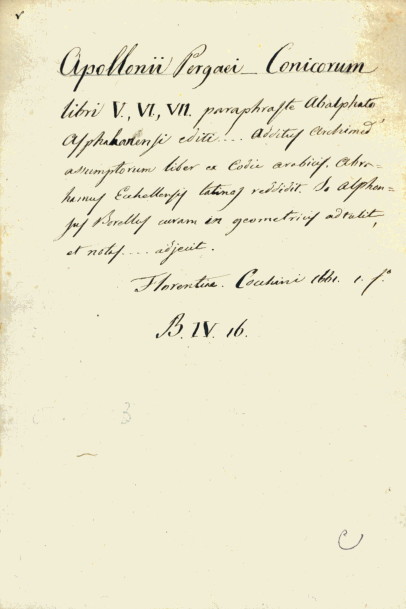 Apollonii Pergaei_ Conicorum
libri V., VI, VII. paraphraste Abalphato
Asphahanensi editi... Additus Archimed
assumptorum liber ex Codic arabicis. Abra=
hamus Echellensis latinos reddidit. Jo Alphon=
sus Borellus curam in geometricis adtulit,
et notas.... adjecit.
Florentiae. Cocchini 1661. 1. fº
B. IV. 16.
3
C